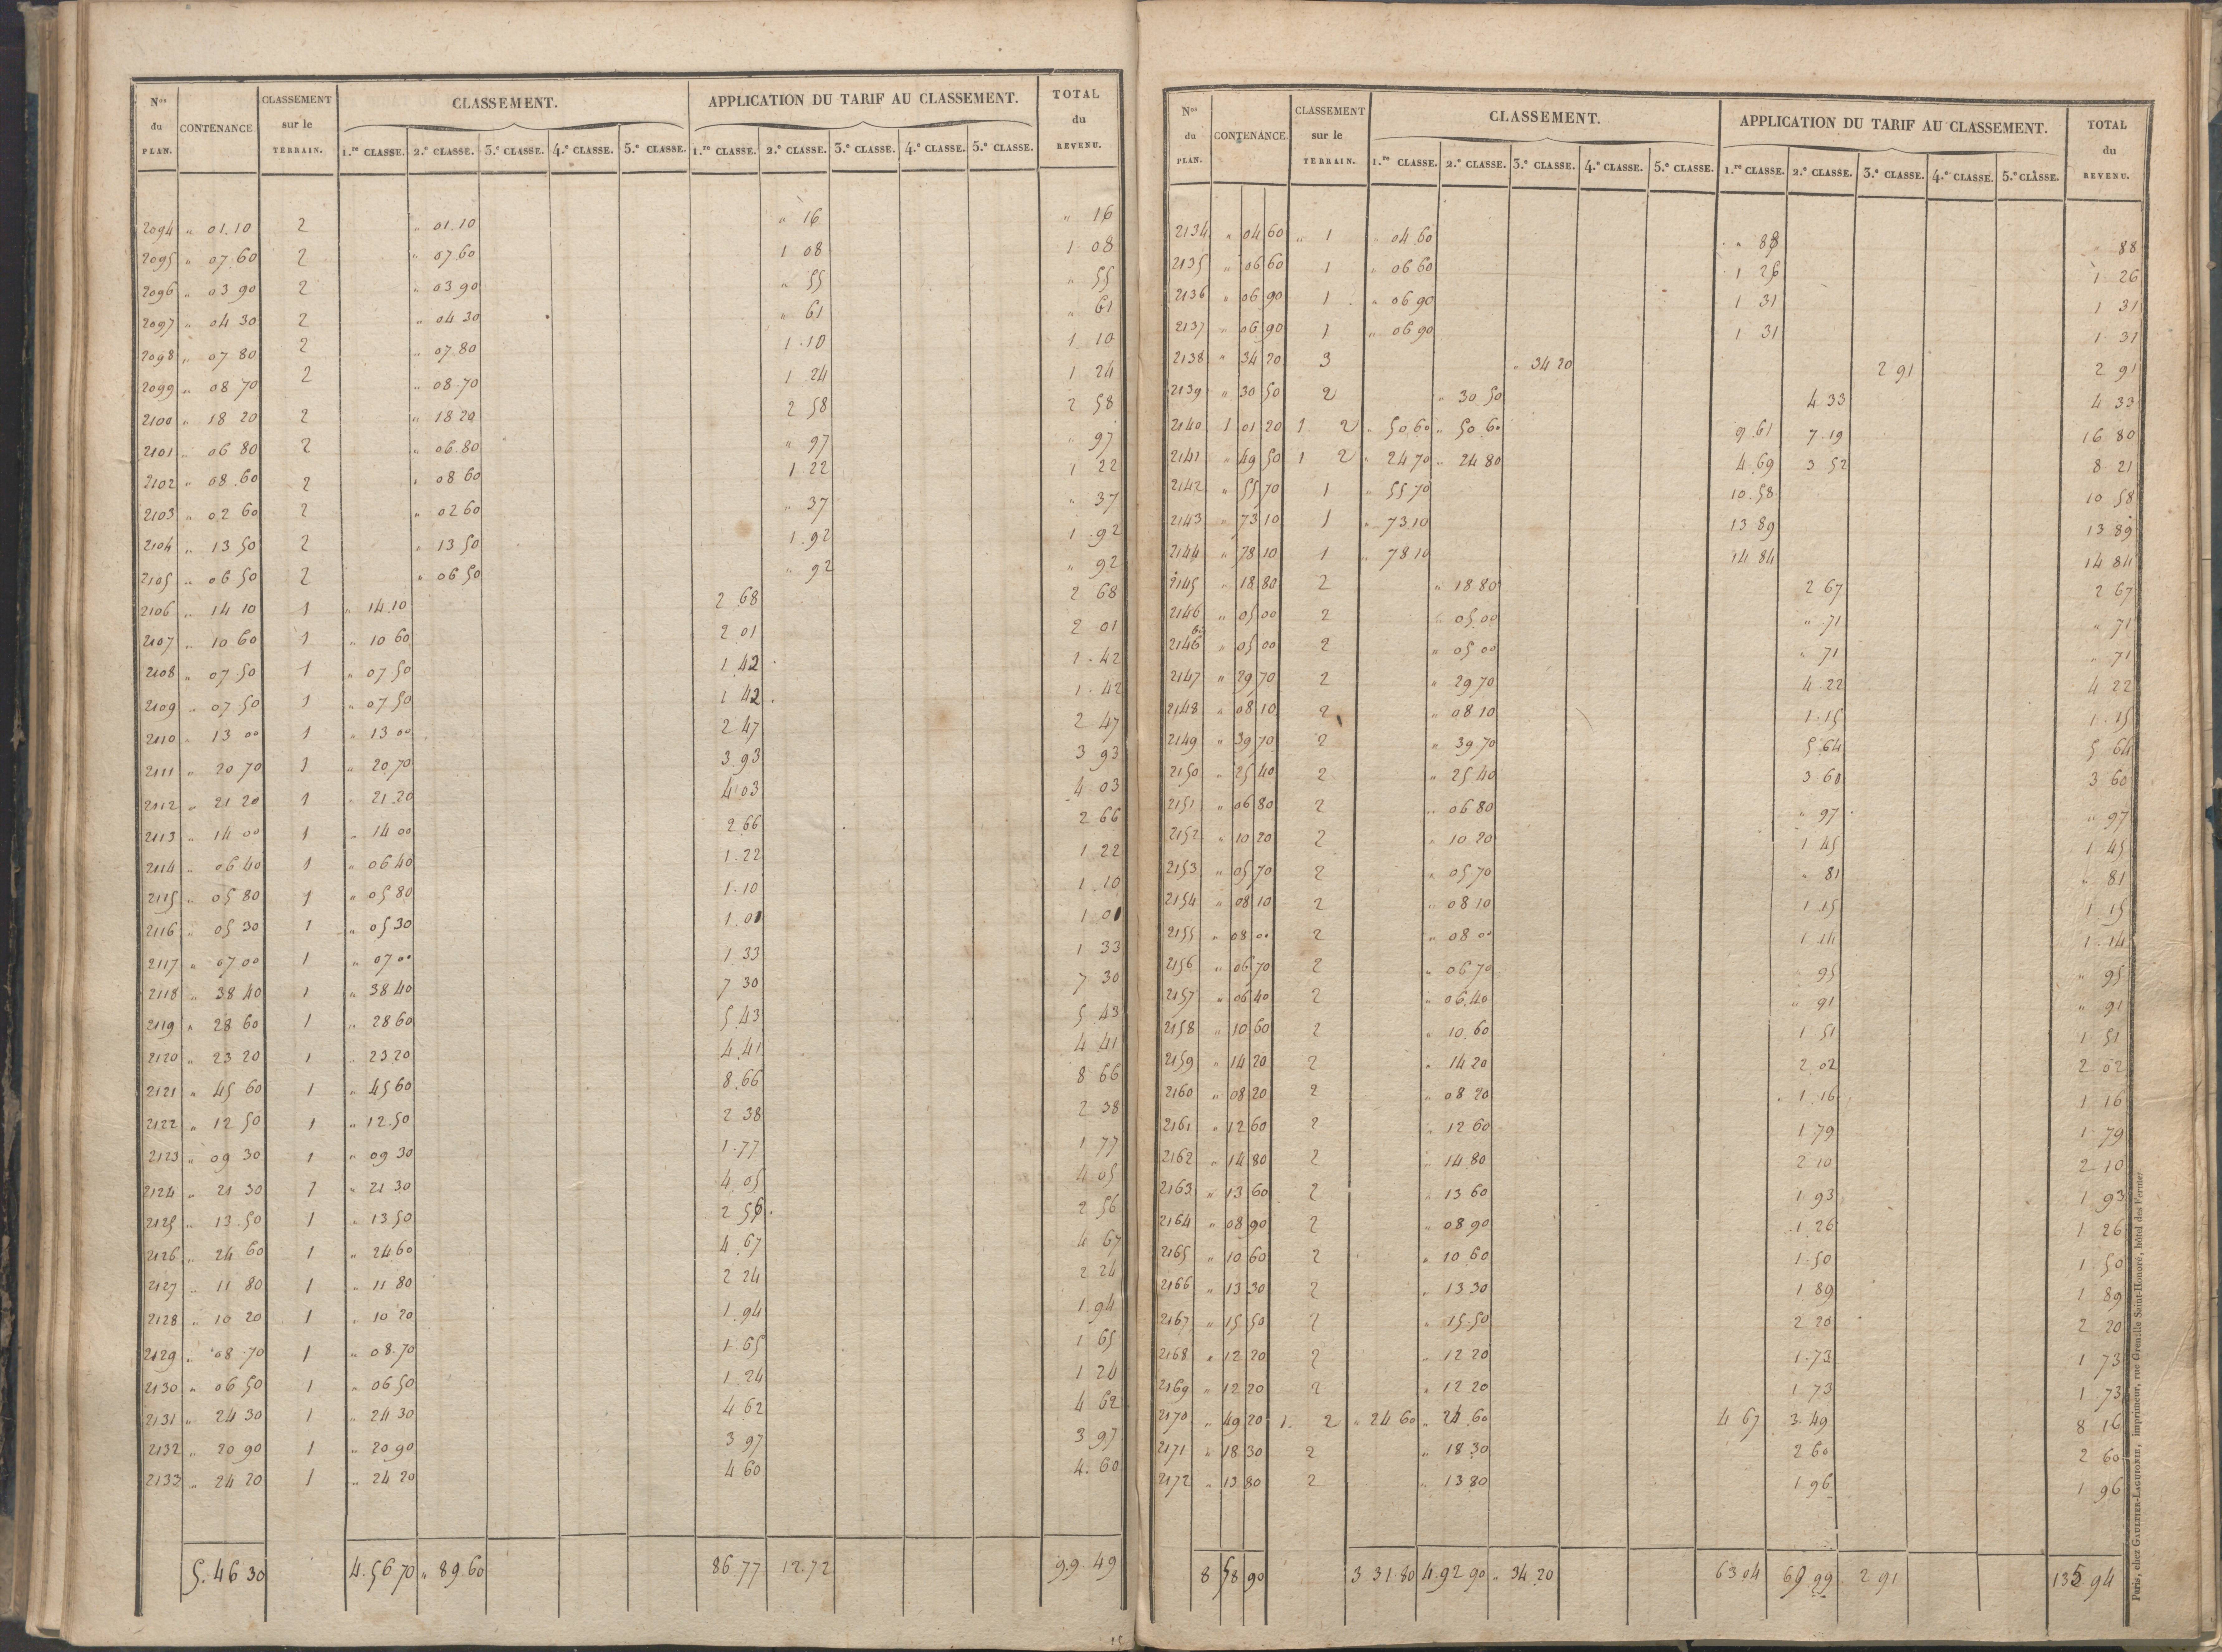 Nos du PLAN. CONTENANCE CLASSEMENT sur le TERRAIN. CLASSEMENT. APPLICATION DU TARIF AU CLASSEMENT. TOTAL du REVENU.
1.re CLASSE. 2.e CLASSE. 3.e CLASSE. 4.e CLASSE. 5.e CLASSE. 1.re CLASSE. 2.e CLASSE. 3.e CLASSE. 4.e CLASSE. 5.e CLASSE.
2094 " 01.10 2 " 01.10 " 16 " 16
2095 " 07.60 2 " 07.60 1 08 1 08
2096 " 03 90 2 " 03 90 " 55 " 55
2097 " 04 30 2 " 04 30 " 61 " 61
2098 " 07 80 2 " 07.80 1.10 1 10
2099 " 08 70 2 " 08.70 1 24 1 24
2100 " 18 20 2 " 18 20 2 58 2 58
2101 " 06 80 2 " 06.80 " 97 " 97
2102 " 08.60 2 " 08 60 1.22 1 22
2103 " 02 60 2 " 02 60 " 37 " 37
2104 " 13 50 2 " 13 50 1.92 1.92
2105 " 06 50 2 " 06 50 " 92 " 92
2106 " 14 10 1 " 14.10 2 68 2 68
2107 " 10 60 1 " 10 60 2 01 2 01
2108 " 07.50 1 " 07 50 1.42 1.42
2109 " 07 50 1 " 07 50 1 42 1.42
2110 " 13 00 1 " 13 00 2 47 2 47
2111 " 20 70 1 " 20 70 3.93 3 93
2112 " 21 20 1 " 21.20 4 03 4 03
2113 " 14 00 1 " 14 00 2 66 2 66
2114 " 06 40 1 " 06 40 1.22 1 22
2115 " 05 80 1 " 05 80 1.10 1 10
2116 " 05 30 1 " 05 30 1.01 1 01
2117 " 07 00 1 " 07 00 1 33 1 33
2118 " 38 40 1 " 38 40 7 30 7 30
2119 " 28 60 1 " 28 60 5.43 5 43
2120 " 23 20 1 " 23 20 4.41 4 41
2121 " 45 60 1 " 45 60 8.66 8 66
2122 " 12 50 1 " 12.50 2 38 2 38
2123 " 09 30 1 " 09 30 1.77 1 77
2124 " 21 30 1 " 21 30 4.05 4 05
2125 " 13.50 1 " 13 50 2 56 2 56
2126 " 24 60 1 " 24 60 4.67 4 67
2127 " 11 80 1 " 11 80 2 24 2 24
2128 " 10 20 1 " 10 20 1.94 1.94
2129 " 08.70 1 " 08.70 1.65 1 65
2130 " 06 50 1 " 06 50 1.24 1 24
2131 " 24 30 1 " 24 30 4 62 4 62
2132 " 20 90 1 " 20.90 3 97 3 97
2133 " 24 20 1 " 24 20 4 60 4.60
5.46 30 4.56 70 " 89.60 86.77 12.72 99 49
Nos du PLAN. CONTENANCE. CLASSEMENT sur le TERRAIN. CLASSEMENT. APPLICATION DU TARIF AU CLASSEMENT. TOTAL du REVENU.
1.re CLASSE. 2.e CLASSE. 3.e CLASSE. 4.e CLASSE. 5.e CLASSE. 1.re CLASSE. 2.e CLASSE. 3.e CLASSE. 4.e CLASSE. 5.e CLASSE.
2134 " 04 60 " 1 " 04.60 " 88 " 88
2135 " 06 60 1 " 06 60 1 26 1 26
2136 " 06 90 1 " 06 90 1 31 1 31
2137 " 06 90 1 " 06 90 1 31 1 31
2138 " 34 20 3 " 34 20 2 91 2 91
2139 " 30 50 2 " 30 50 4 33 4 33
2140 1 01 20 1 2 " 50 60 " 50 60 9.61 7.19 16 80
2141 " 49 50 1 2 " 24 70 " 24 80 4.69 3 52 8 21
2142 " 55 70 1 " 55 70 10.58 10 58
2143 " 73 10 1 " 73.10 13 89 13 89
2144 " 78 10 1 " 78 10 14 84 14 84
2145 " 18 80 2 " 18.80 2 67 2 67
2146 " 05 00 2 " 05.00 " 71 " 71
2146 bis " 05 00 2 " 05 00 " 71 " 71
2147 " 29 70 2 " 29 70 4.22 4 22
2148 " 08 10 2 " 08 10 1.15 1.15
2149 " 39 70 2 " 39.70 5.64 5 64
2150 " 25 40 2 " 25 40 3 60 3 60
2151 " 06 80 2 " 06 80 " 97 " 97
2152 " 10 20 2 " 10 20 1 45 1 45
2153 " 05 70 2 " 05 70 " 81 " 81
2154 " 08 10 2 " 08 10 1 15 1 15
2155 " 08 00 2 " 08 00 1 14 1.14
2156 " 06 70 2 " 06 70 " 95 " 95
2157 " 06 40 2 " 06.40 " 91 " 91
2158 " 10 60 2 " 10 60 1 51 1 51
2159 " 14 20 2 " 14 20 2 02 2 02
2160 " 08 20 2 " 08 20 1.16 1 16
2161 " 12 60 2 " 12 60 1 79 1 79
2162 " 14 80 2 " 14 80 2 10 2 10
2163 " 13 60 2 " 13 60 1 93 1 93
2164 " 08 90 2 " 08 90 1 26 1 26
2165 " 10 60 2 " 10 60 1.50 1 50
2166 " 13 30 2 " 13 30 1 89 1 89
2167 " 15 50 2 " 15.50 2 20 2 20
2168 " 12 20 2 " 12 20 1.73 1 73
2169 " 12 20 2 " 12 20 1 73 1 73
2170 " 49 20 1 2 " 24 60 " 24 60 4 67 3.49 8 16
2171 " 18 30 2 " 18.30 2 60 2 60
2172 " 13 80 2 " 13 80 1 96 1 96
8 58 90 3 31 80 4.92 90 " 34.20 63 04 69.99 2 91 135 94
Paris, chez GAULTIER-LAGUIONIE, imprimeur, rue Grenelle Saint-Honoré, hôtel des Fermes